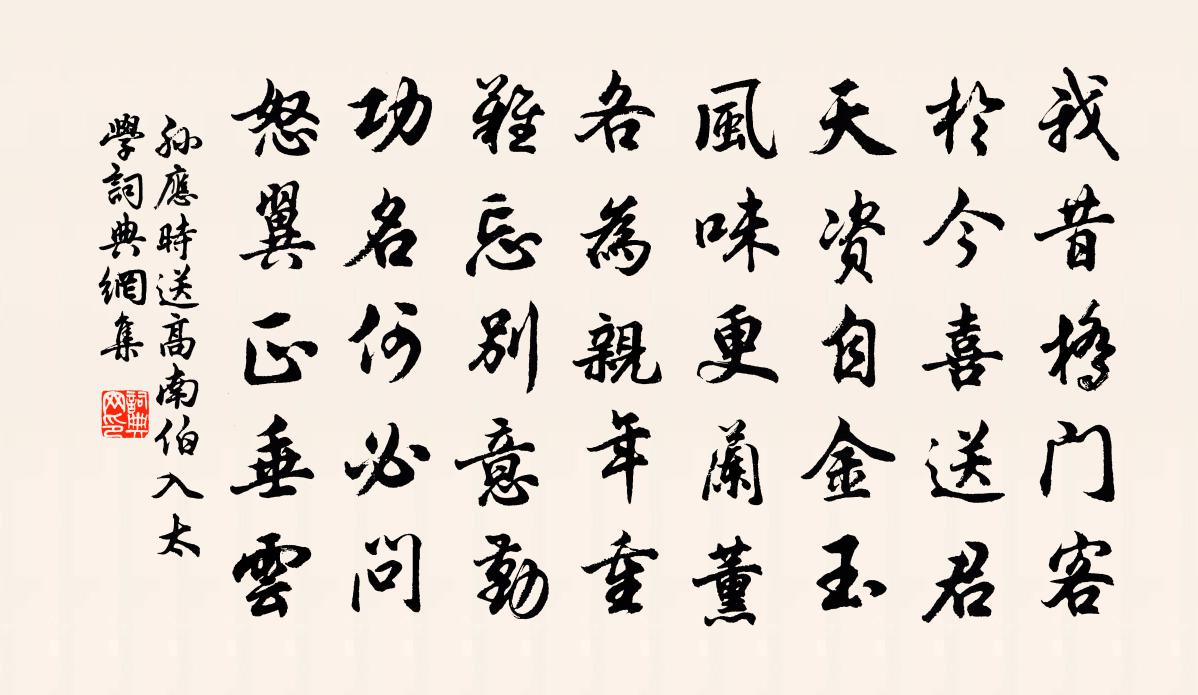 我昔橋门客
於今喜送君
天資自金玉
風味更蘭薰
各為親年重
難忘別意勤
功名何必問
怒翼正垂雲
孫應時送高南伯入太
學詞典網集
詞典网印